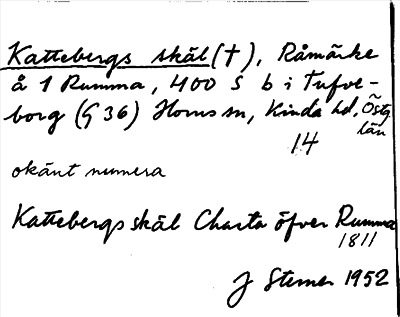 Kattebergs skäl (†), Råmärke
å 1 Rumma, 400 S b i Tufve-
borg (G 36) Horns sn, Kinda hd, Östg
län
14
okänt numera
Kattebergs skäl Charta öfver Rumma
1811
J Stemer 1952